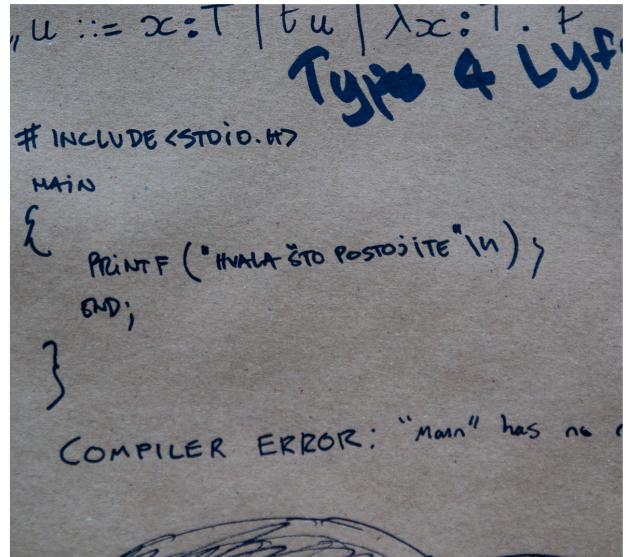 u ::= x:T | t u | λx:T. t
Types 4 Lyf
# INCLUDE <STDIO.H>
MAIN
{
PRINTF ("HVALA ŠTO POSTOJITE"\n);
END;
}
COMPILER ERROR: "Main" has no